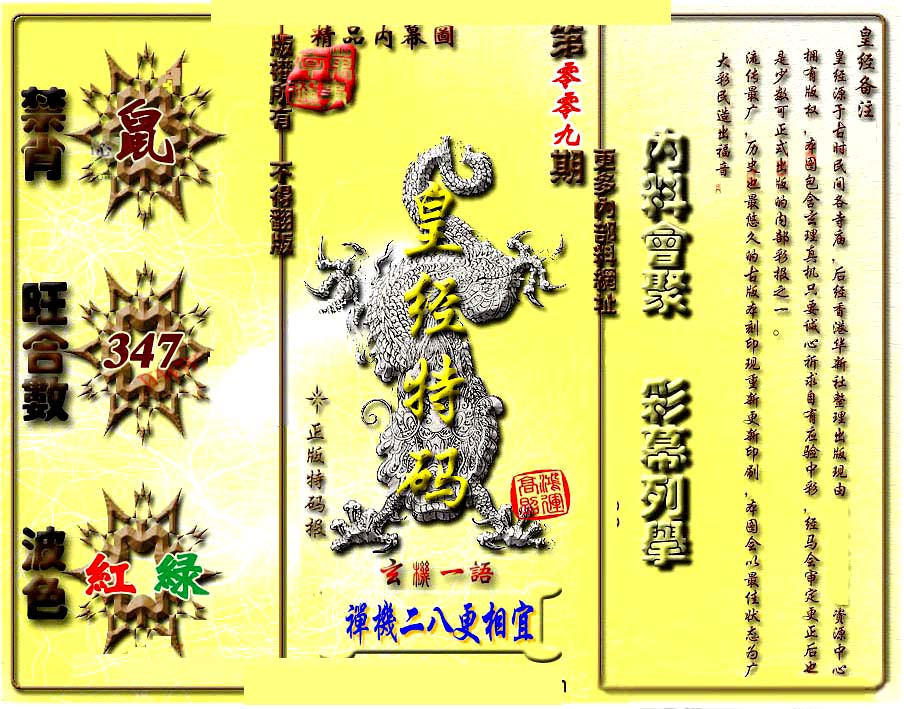 皇经备注
皇经源于古时民间各寺庙，后经香港华新社整理出版现由 资源中心
拥有版权，本图包含玄理真机只要诚心祈求自有应验中彩，经马会审定更正后也
是少数可正式出版的内部彩报之一。
流传最广，历史也最悠久的古版本刻印现重新更新印刷，本图会以最佳状态为广
大彩民造出福音
內料會聚
彩幕列舉
更多內部料網址
第零零九期
精品內幕圖
皇经特码
正版特码报
鴻運
高照
玄機一語
禪機二八更相宜
版權所有 不得翻版
禁肖
鼠
旺合數
347
波色
紅 綠